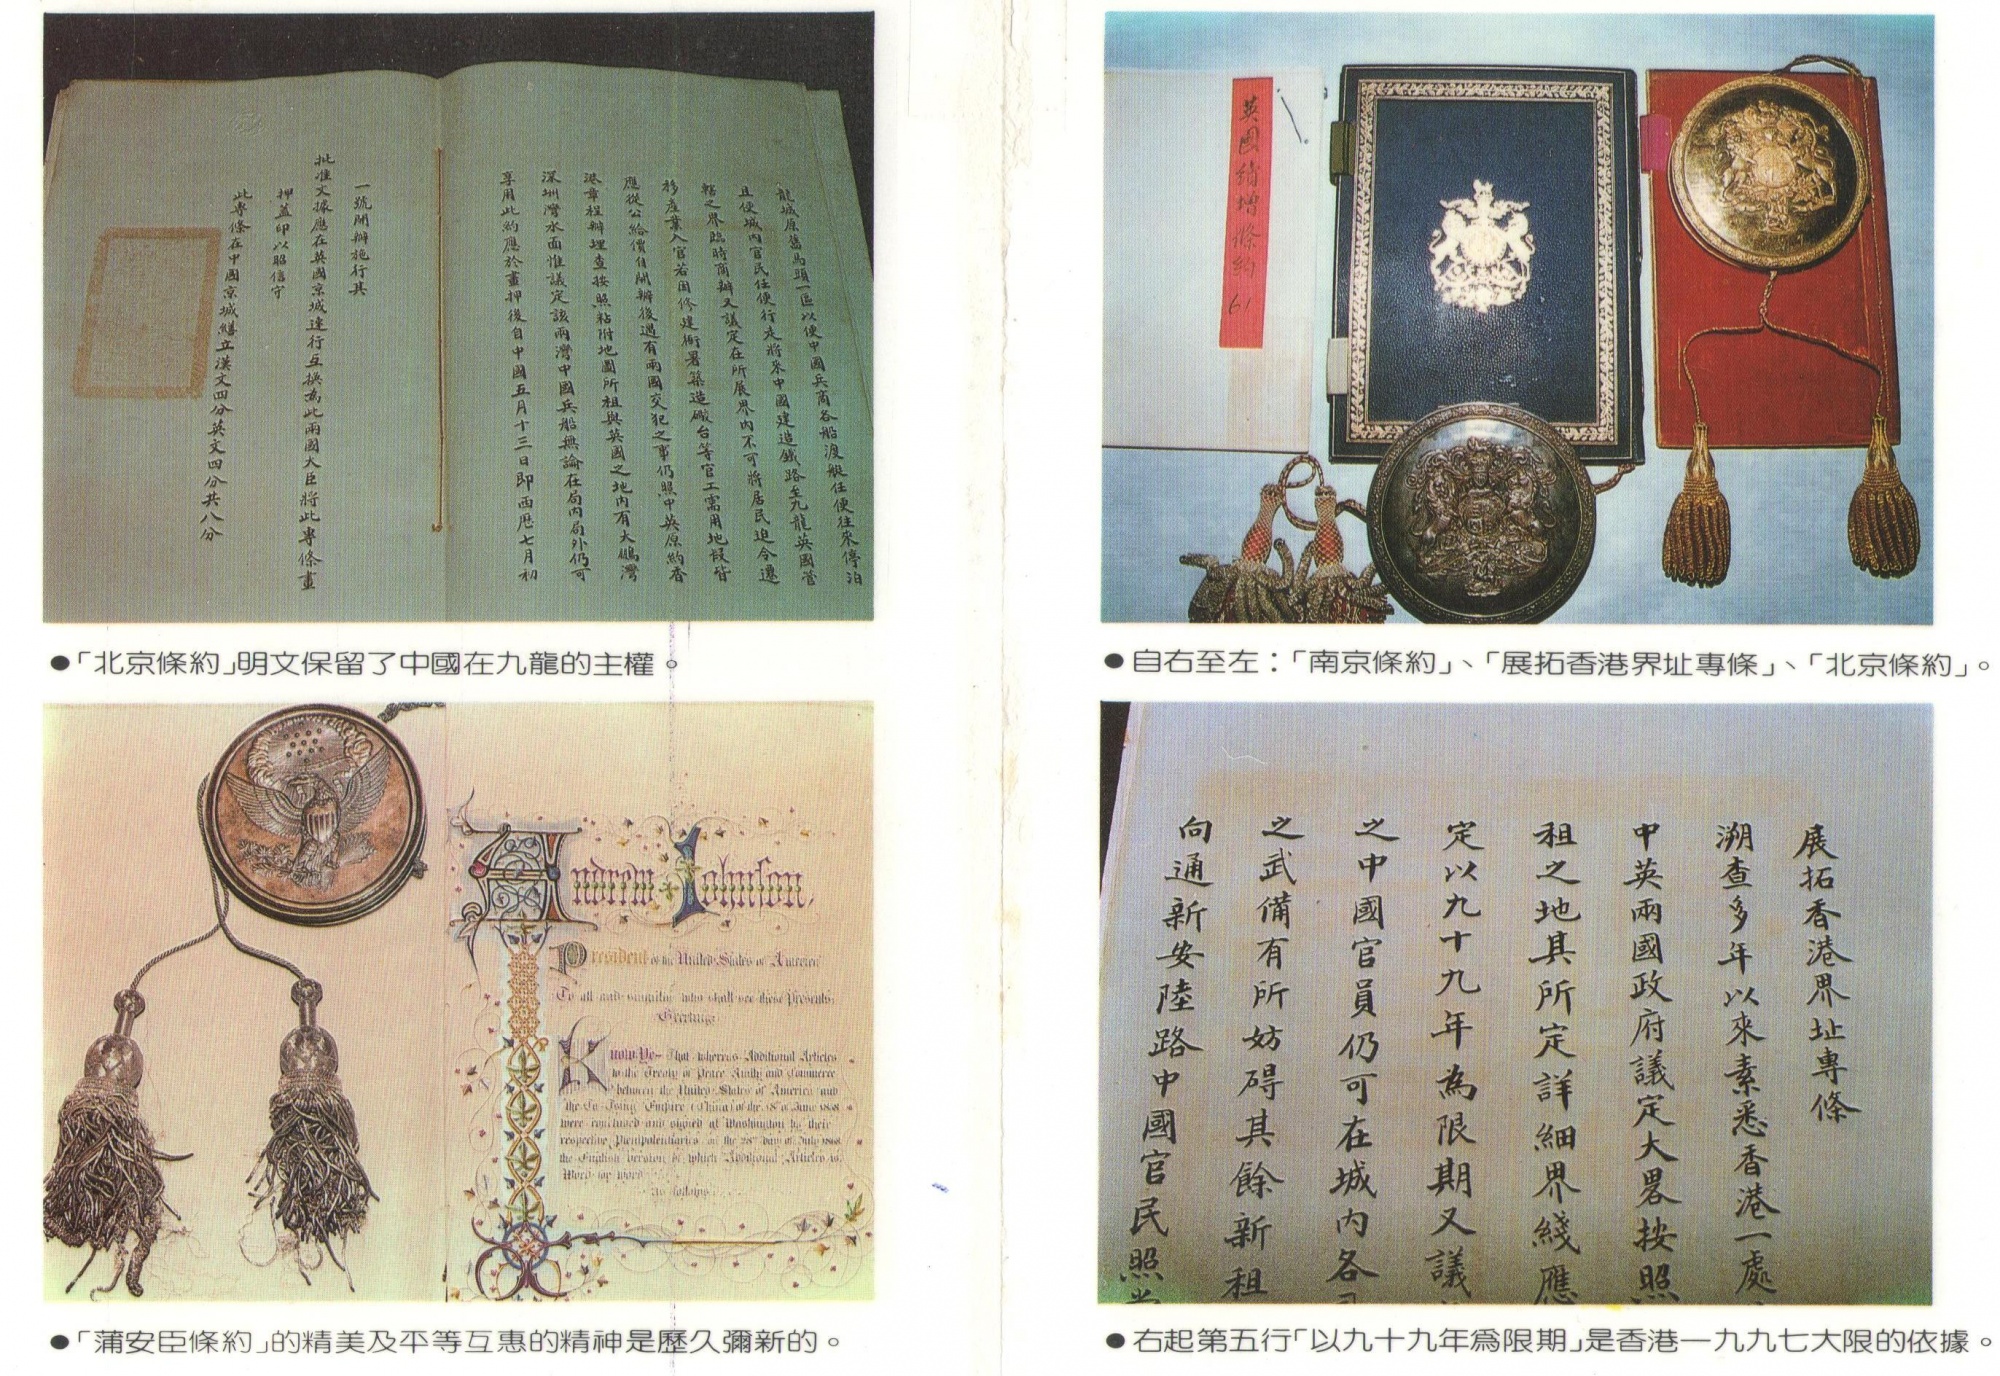 龍城原舊馬頭一區以便中國兵商各船渡艇任便往來停泊
且便城內官民任便行走將來中國建造鐵路至九龍英國管
轄之界臨時商辦又議定在所展界內不可將居民迫令遷
移產業入官若因修建衙署築造礮台等官工需用地段皆
應從公給價自開辦後遇有兩國交犯之事仍照中英原約香
港章程辦理查按照粘附地圖所租與英國之地內有大鵬灣
深圳灣水面惟議定該兩灣中國兵船無論在局內局外仍可
享用此約應於畫押後自中國五月十三日即西歷七月初
一號開辦施行其
批准文據應在英國京城速行互換為此兩國大臣將此專條畫
押蓋印以昭信守
此專條在中國京城繕立漢文四分英文四分共八分
●「北京條約」明文保留了中國在九龍的主權。
英國續增條約
61
●自右至左：「南京條約」、「展拓香港界址專條」、「北京條約」。
Andrew Johnson,
President of the United States of America
To all and singular who shall see these Presents,
Greeting:
Know Ye That whereas Additional Articles
to the Treaty of Peace Amity and Commerce
between the United States of America and
the Ta Tsing Empire (China) of the 18 of June 1858
were concluded and signed at Washington by their
respective Plenipotentiaries on the 28th day of July 1868
the English version of which Additional Articles is
Word for word
as follows
●「蒲安臣條約」的精美及平等互惠的精神是歷久彌新的。
展拓香港界址專條
溯查多年以來素悉香港一處
中英兩國政府議定大畧按照
租之地其所定詳細界綫應
定以九十九年為限期又議
之中國官員仍可在城內各
之武備有所妨碍其餘新租
向通新安陸路中國官民照
●右起第五行「以九十九年為限期」是香港一九九七大限的依據。